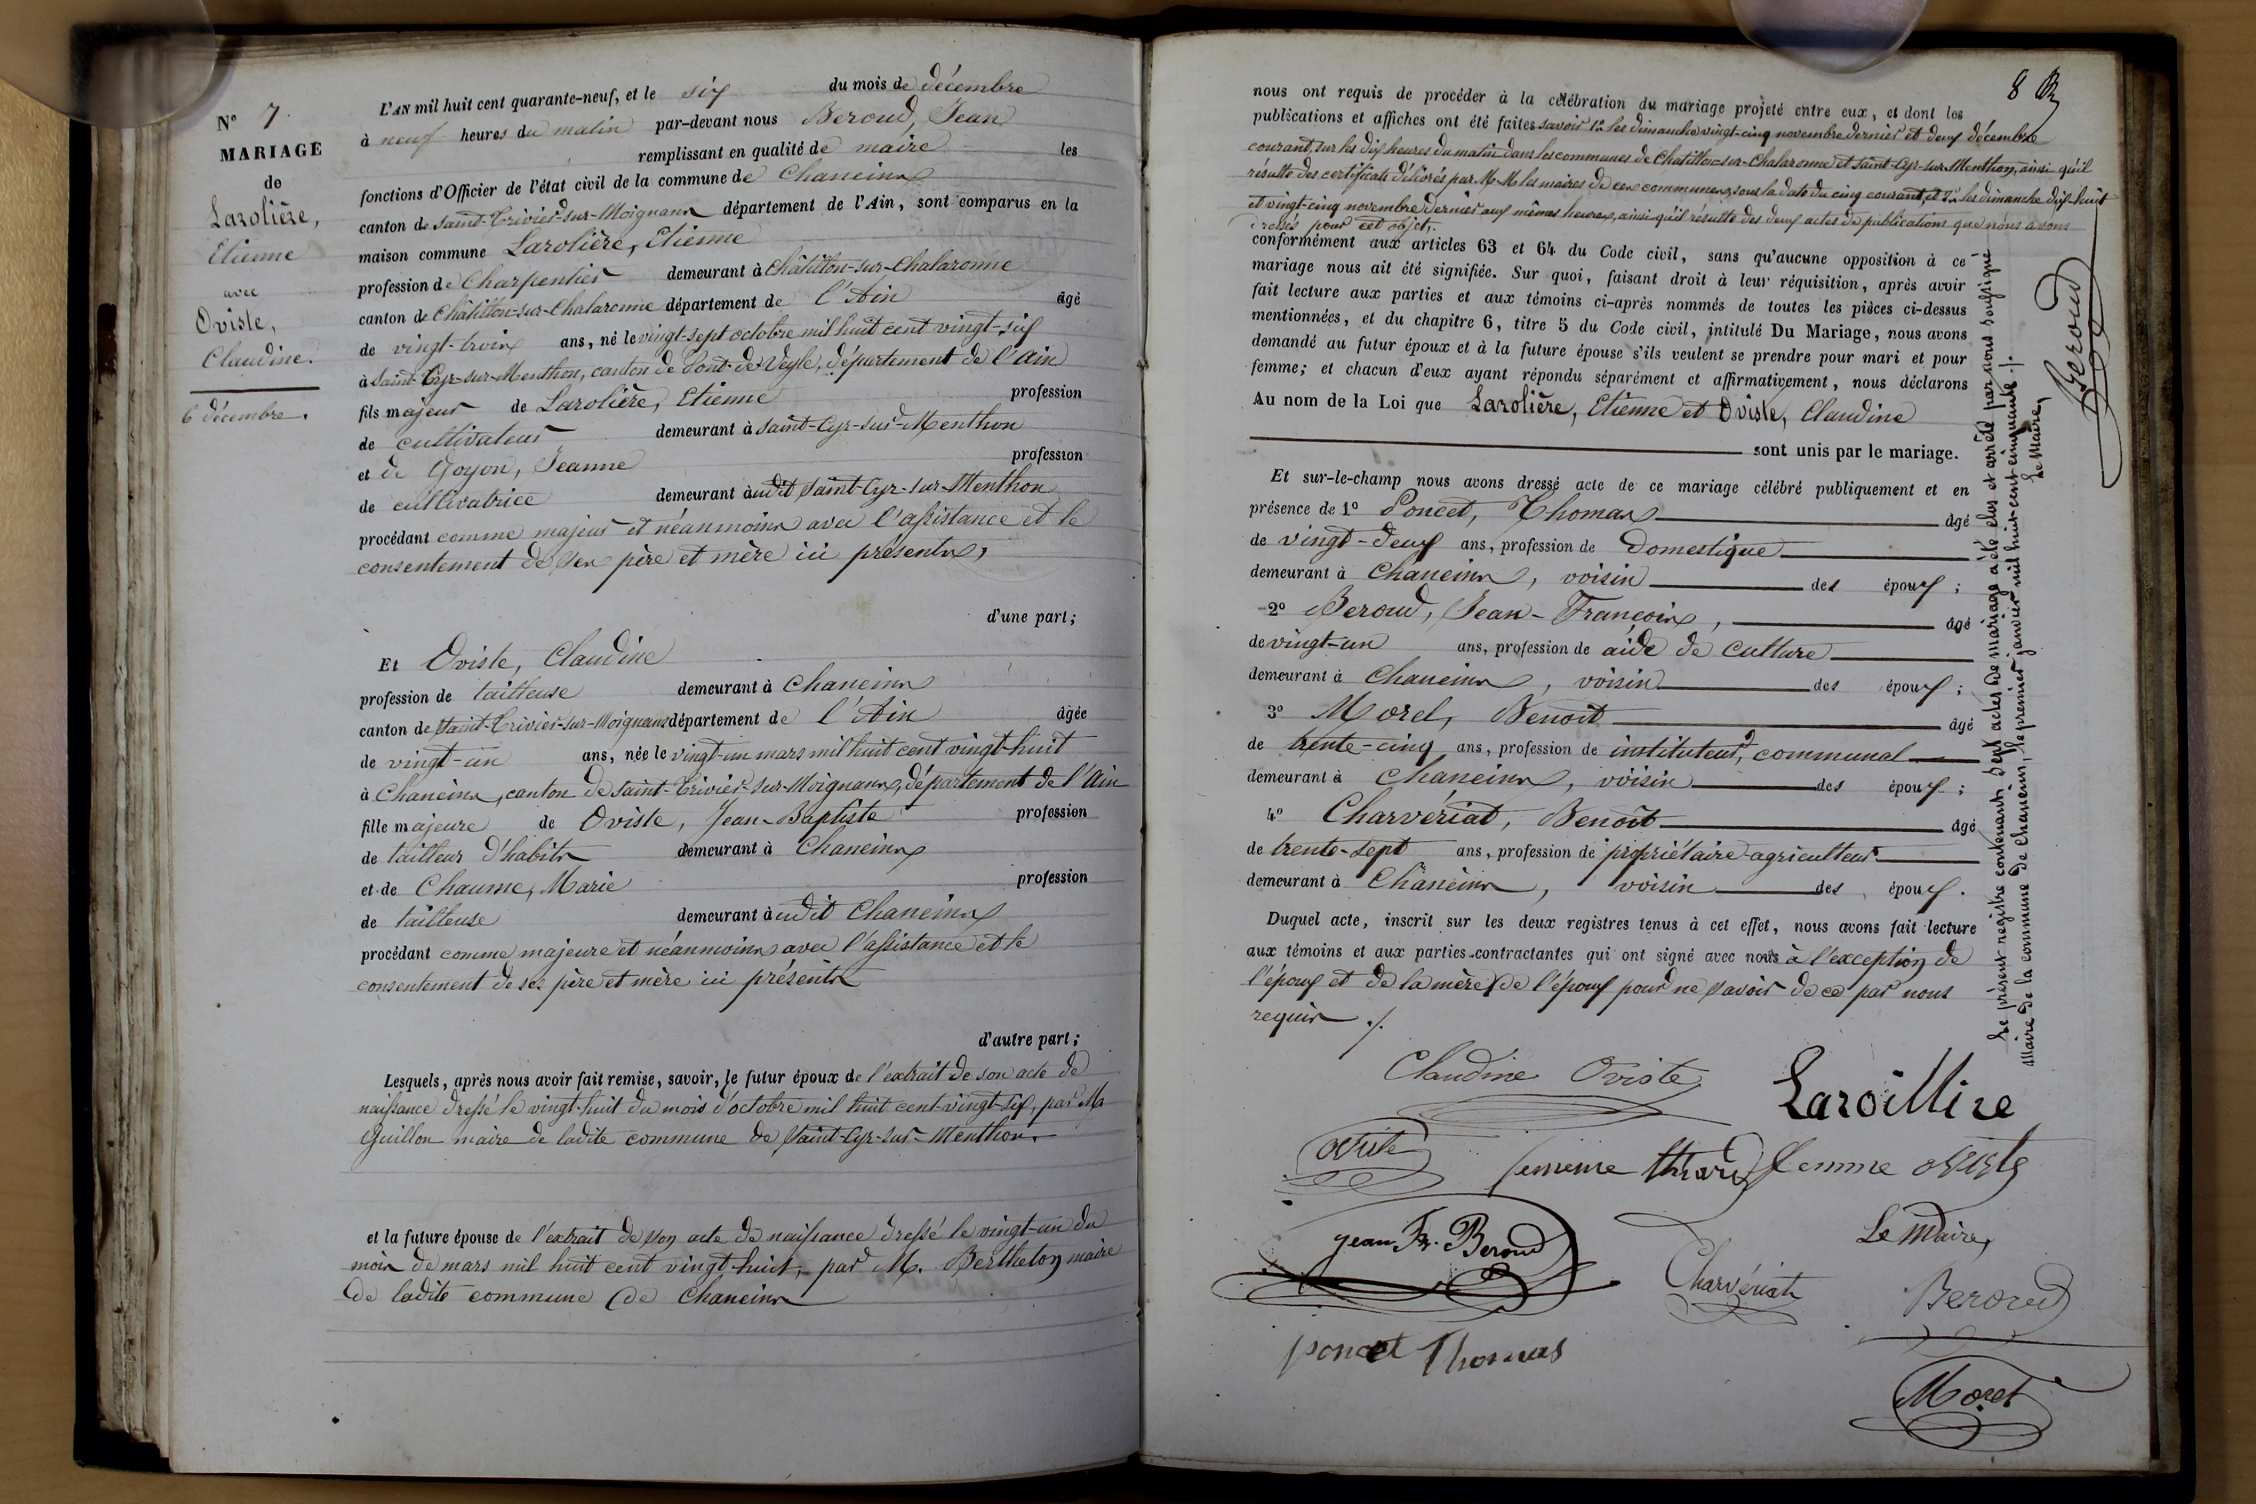 N° 7
MARIAGE
de
Larolière,
Etienne
avec
Oviste,
Claudine.
6 décembre.
L'AN mil huit cent quarante-neuf, et le six du mois de décembre
à neuf heures du matin par-devant nous Beroud, Jean
remplissant en qualité de maire les
fonctions d'Officier de l'état civil de la commune de Chaneins
canton de Saint-Trivier-sur-Moignans département de l'Ain, sont comparus en la
maison commune Larolière, Etienne
profession de Charpentier demeurant à Châtillon-sur-Chalaronne
canton de Châtillon-sur-Chalaronne département de l'Ain âgé
de vingt-trois ans, né le vingt-sept octobre mil huit cent vingt-six
à Saint-Cyr-sur-Menthon, canton de Pont-de-Veyle, département de l'Ain
fils majeur de Larolière, Etienne profession
de cultivateur demeurant à Saint-Cyr-sur-Menthon
et de Goyon, Jeanne profession
de cultivatrice demeurant audit Saint-Cyr-sur-Menthon
procédant comme majeur et néanmoins avec l'assistance et le
consentement de ses père et mère ici présents,
d'une part;
Et Oviste, Claudine
profession de tailleuse demeurant à Chaneins
canton de Saint-Trivier-sur-Moignans département de l'Ain âgée
de vingt-un ans, née le vingt-un mars mil huit cent vingt-huit
à Chaneins, canton de Saint-Trivier-sur-Moignans, département de l'Ain
fille majeure de Oviste, Jean-Baptiste profession
de tailleur d'habits demeurant à Chaneins
et de Chaume, Marie profession
de tailleuse demeurant audit Chaneins
procédant comme majeure et néanmoins avec l'assistance et le
consentement de ses père et mère ici présents
d'autre part;
Lesquels, après nous avoir fait remise, savoir, le futur époux de l'extrait de son acte de
naissance dressé le vingt-huit du mois d'octobre mil huit cent vingt-six, par M.
Guillon maire de ladite commune de Saint-Cyr-sur-Menthon.
et la future épouse de l'extrait de son acte de naissance dressé le vingt-un du
mois de mars mil huit cent vingt-huit, par M. Bertheton maire
de ladite commune de Chaneins
8
nous ont requis de procéder à la célébration du mariage projeté entre eux, et dont les
publications et affiches ont été faites savoir 1° les dimanches vingt-cinq novembre dernier et deux décembre
courant, sur les dix heures du matin dans les communes de Chatillon-sur-Chalaronne et Saint-Cyr-sur-Menthon, ainsi qu'il
résulte des certificats délivrés par M.M. les maires de ces communes, sous la date du cinq courant, et 2° les dimanche dix-huit
et vingt-cinq novembre dernier aux mêmes heures, ainsi qu'il résulte des deux actes de publications que nous avons
dressés pour cet objet,
conformément aux articles 63 et 64 du Code civil, sans qu'aucune opposition à ce
mariage nous ait été signifiée. Sur quoi, faisant droit à leur réquisition, après avoir
fait lecture aux parties et aux témoins ci-après nommés de toutes les pièces ci-dessus
mentionnées, et du chapitre 6, titre 5 du Code civil, intitulé Du Mariage, nous avons
demandé au futur époux et à la future épouse s'ils veulent se prendre pour mari et pour
femme; et chacun d'eux ayant répondu séparément et affirmativement, nous déclarons
Au nom de la Loi que Larolière, Etienne et Oviste, Claudine
sont unis par le mariage.
Et sur-le-champ nous avons dressé acte de ce mariage célébré publiquement et en
présence de 1° Poncet, Thomas âgé
de vingt-deux ans, profession de domestique
demeurant à Chaneins, voisin des époux;
2° Beroud, Jean-François, âgé
de vingt-un ans, profession de aide de culture
demeurant à Chaneins, voisin des époux;
3° Morel, Benoit âgé
de trente-cinq ans, profession de instituteur communal
demeurant à Chaneins, voisin des époux;
4° Charvériat, Benoît âgé
de trente-sept ans, profession de propriétaire-agriculteur
demeurant à Chaneins, voisin des époux.
Duquel acte, inscrit sur les deux registres tenus à cet effet, nous avons fait lecture
aux témoins et aux parties contractantes qui ont signé avec nous à l'exception de
l'époux et de la mère de l'époux pour ne savoir de ce par nous
requis ./.
Claudine Oviste
Laroillire
Oviste
femme oviste
jean Fs. Beroud
Charvériat
Le Maire,
Beroud
poncet Thomas
Morel
Le présent registre contenant sept actes de mariage a été clos et arrêté par nous soussigné
Maire de la commune de Chaneins, le premier janvier mil huit cent cinquante ./.
Le Maire,
Beroud